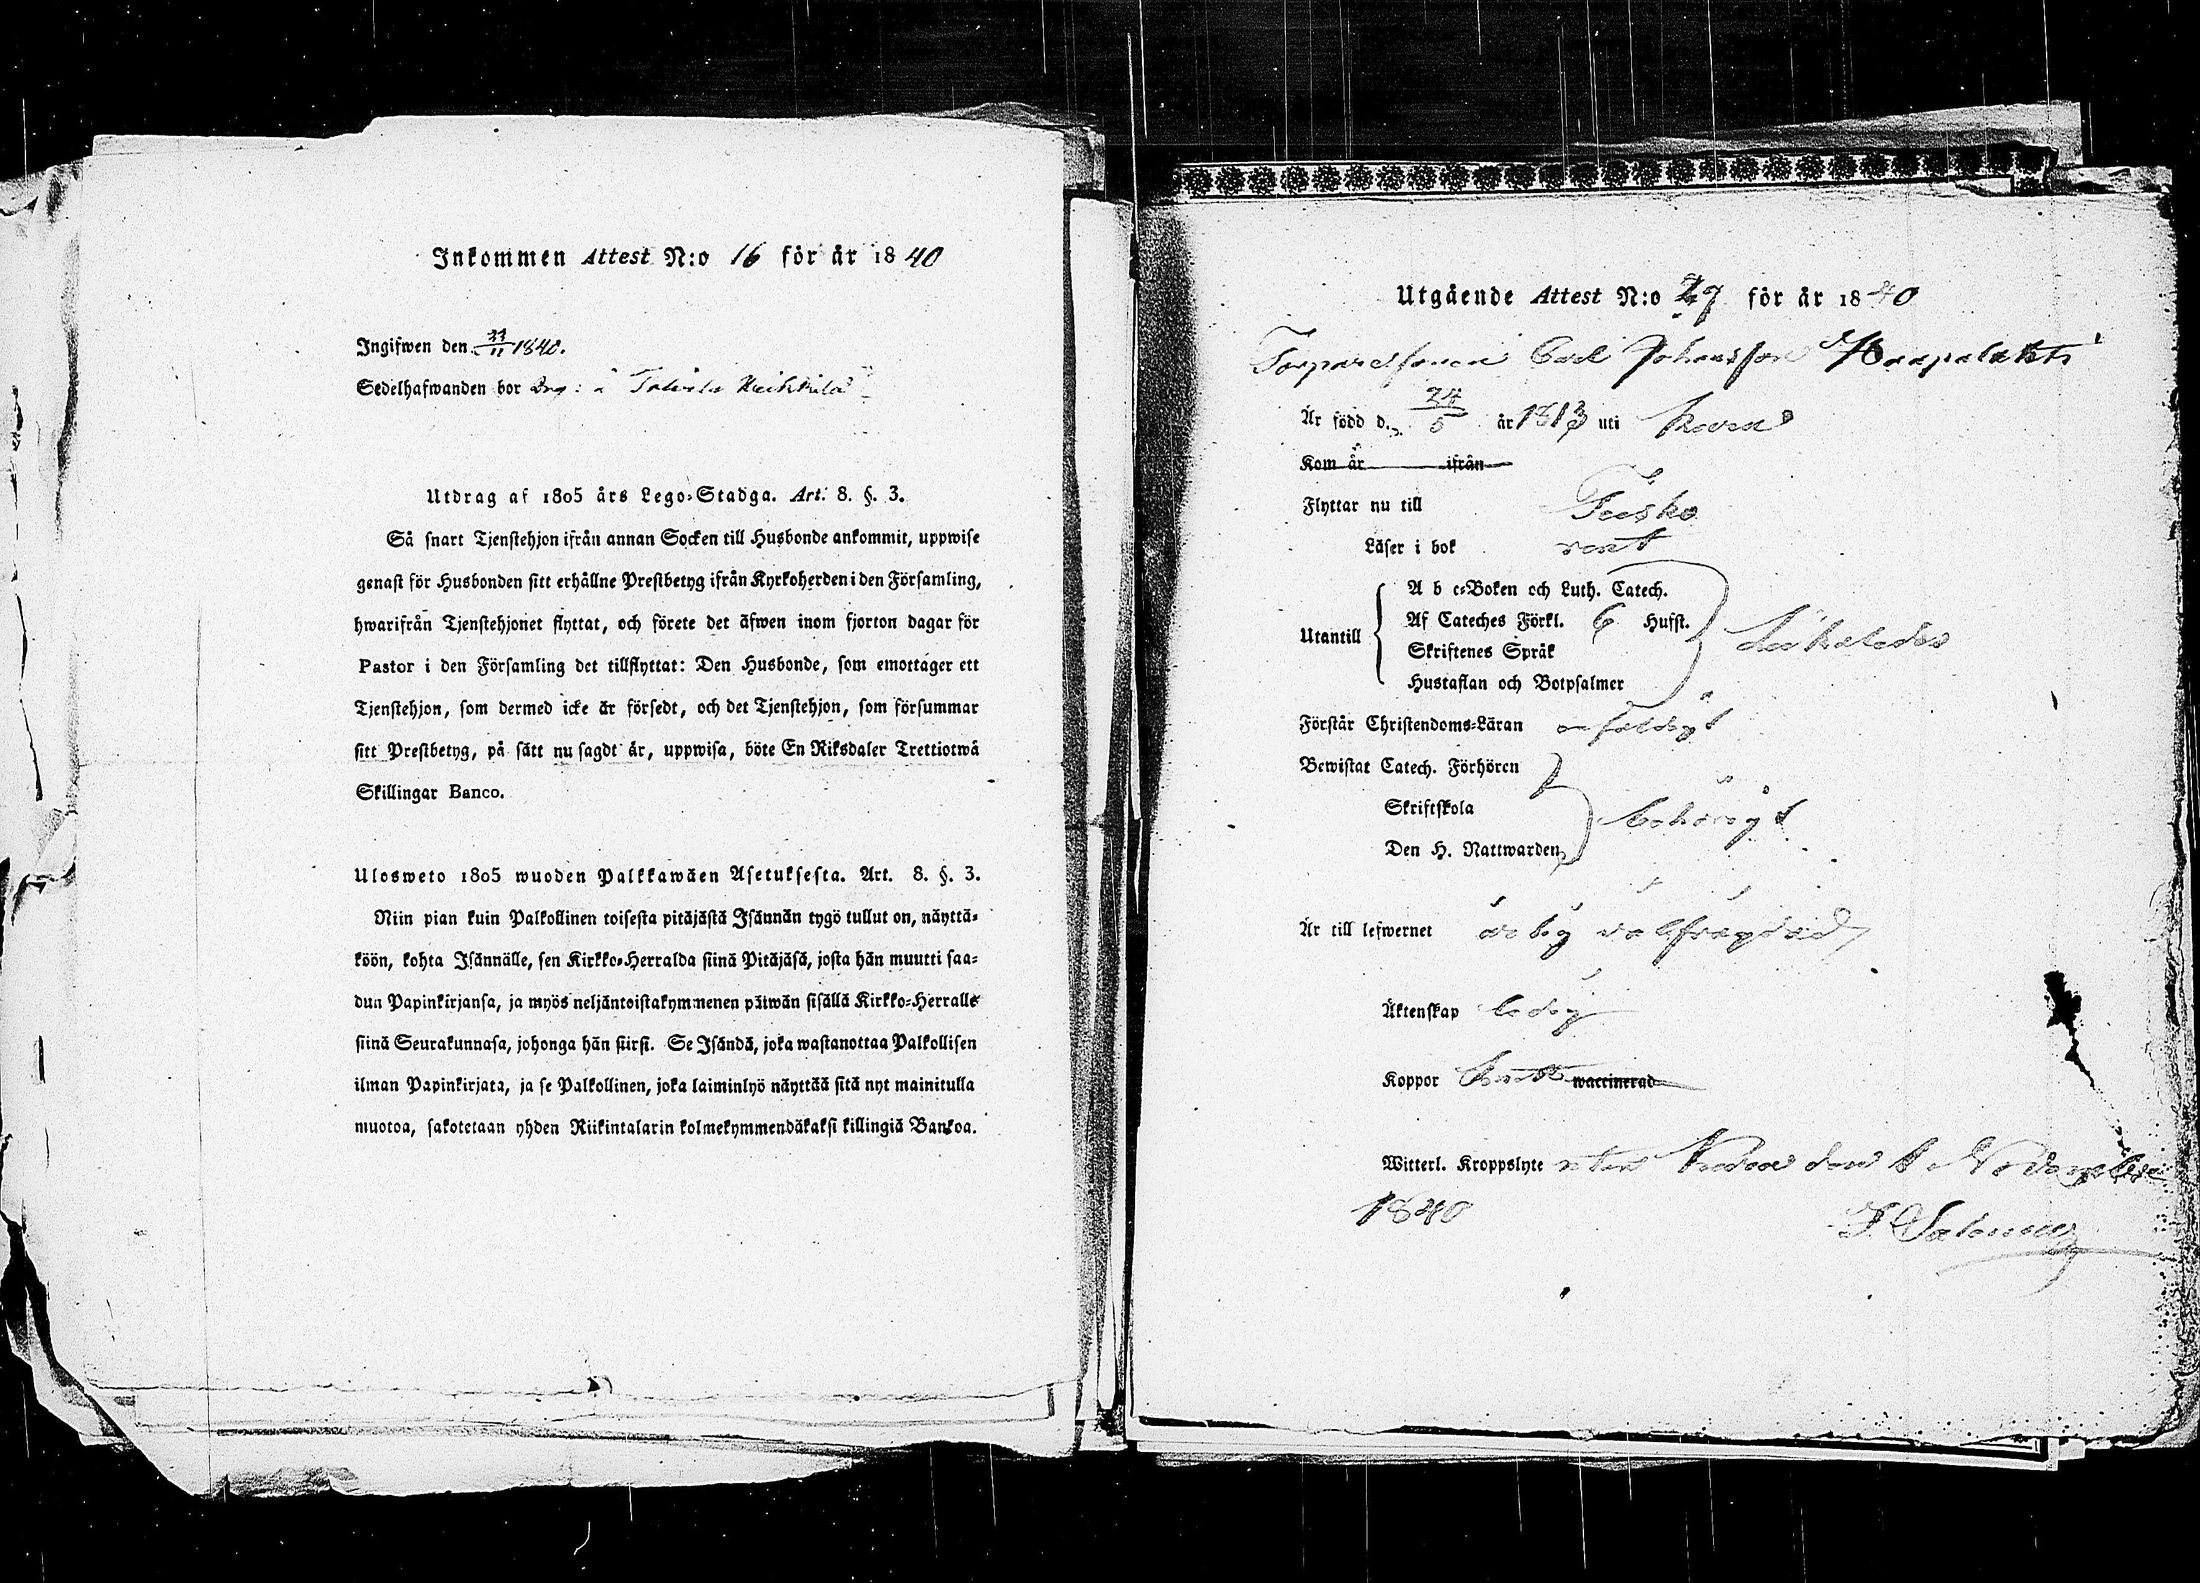 Inkommen Attest N:o 16 för år 1840
Ingifwen den 22/11 1840.
Sedelhafwanden bor Dng: å Tolvila Heikkilä
Utdrag af 1805 års Lego-Stadga. Art. 8. §. 3.
Så snart Tjenstehjon ifrån annan Socken till Husbonde ankommit, uppwise
genast för Husbonden sitt erhållne Prestbetyg ifrån Kyrkoherden i den Församling,
hwarifrån Tjenstehjonet flyttat, och förete det äfwen inom fjorton dagar för
Pastor i den Församling det tillflyttat: Den Husbonde, som emottager ett
Tjenstehjon, som dermed icke är försedt, och det Tjenstehjon, som försummar
sitt Prestbetyg, på sätt nu sagdt är, uppwisa, böte En Riksdaler Trettiotwå
Skillingar Banco.
Ulosweto 1805 wuoden Palkkawäen Asetuksesta. Art. 8. §. 3.
Niin pian kuin Palkollinen toisesta pitäjästä Isännän tygö tullut on, näyttä-
köön, kohta Isännälle, sen Kirkko-Herralda siinä Pitäjäsä, josta hän muutti saa-
dun Papinkirjansa, ja myös neljäntoistakymmenen päiwän sisällä Kirkko-Herralle
siinä Seurakunnasa, johonga hän siirsi. Se Isändä, joka wastanottaa Palkollisen
ilman Papinkirjata, ja se Palkollinen, joka laiminlyö näyttää sitä nyt mainitulla
muotoa, sakotetaan yhden Riikintalarin kolmekymmendäkaksi killingiä Bankoa.
Utgående Attest N:o 27 för år 1840
Torparesonen Carl Johansson Haapalahti
Är född d. 24/5 år 1813 uti
Kom år ifrån
Flyttar nu till Fiskо
Läser i bok rent
A b c-Boken och Luth. Catech.
Af Cateches Förkl. 6 Hufst.
Utantill
Skriftenes Språk
Hustaflan och Botpsalmer
Förstår Christendoms-Läran enfaldigt
Bewistat Catech. Förhören
Skriftskola behörigt
Den H. Nattwarden
Är till lefwernet ärlig välfrägdad
Äktenskap ledig
Koppor haft waccinerad
Witterl. Kroppslyte utan den November
1840